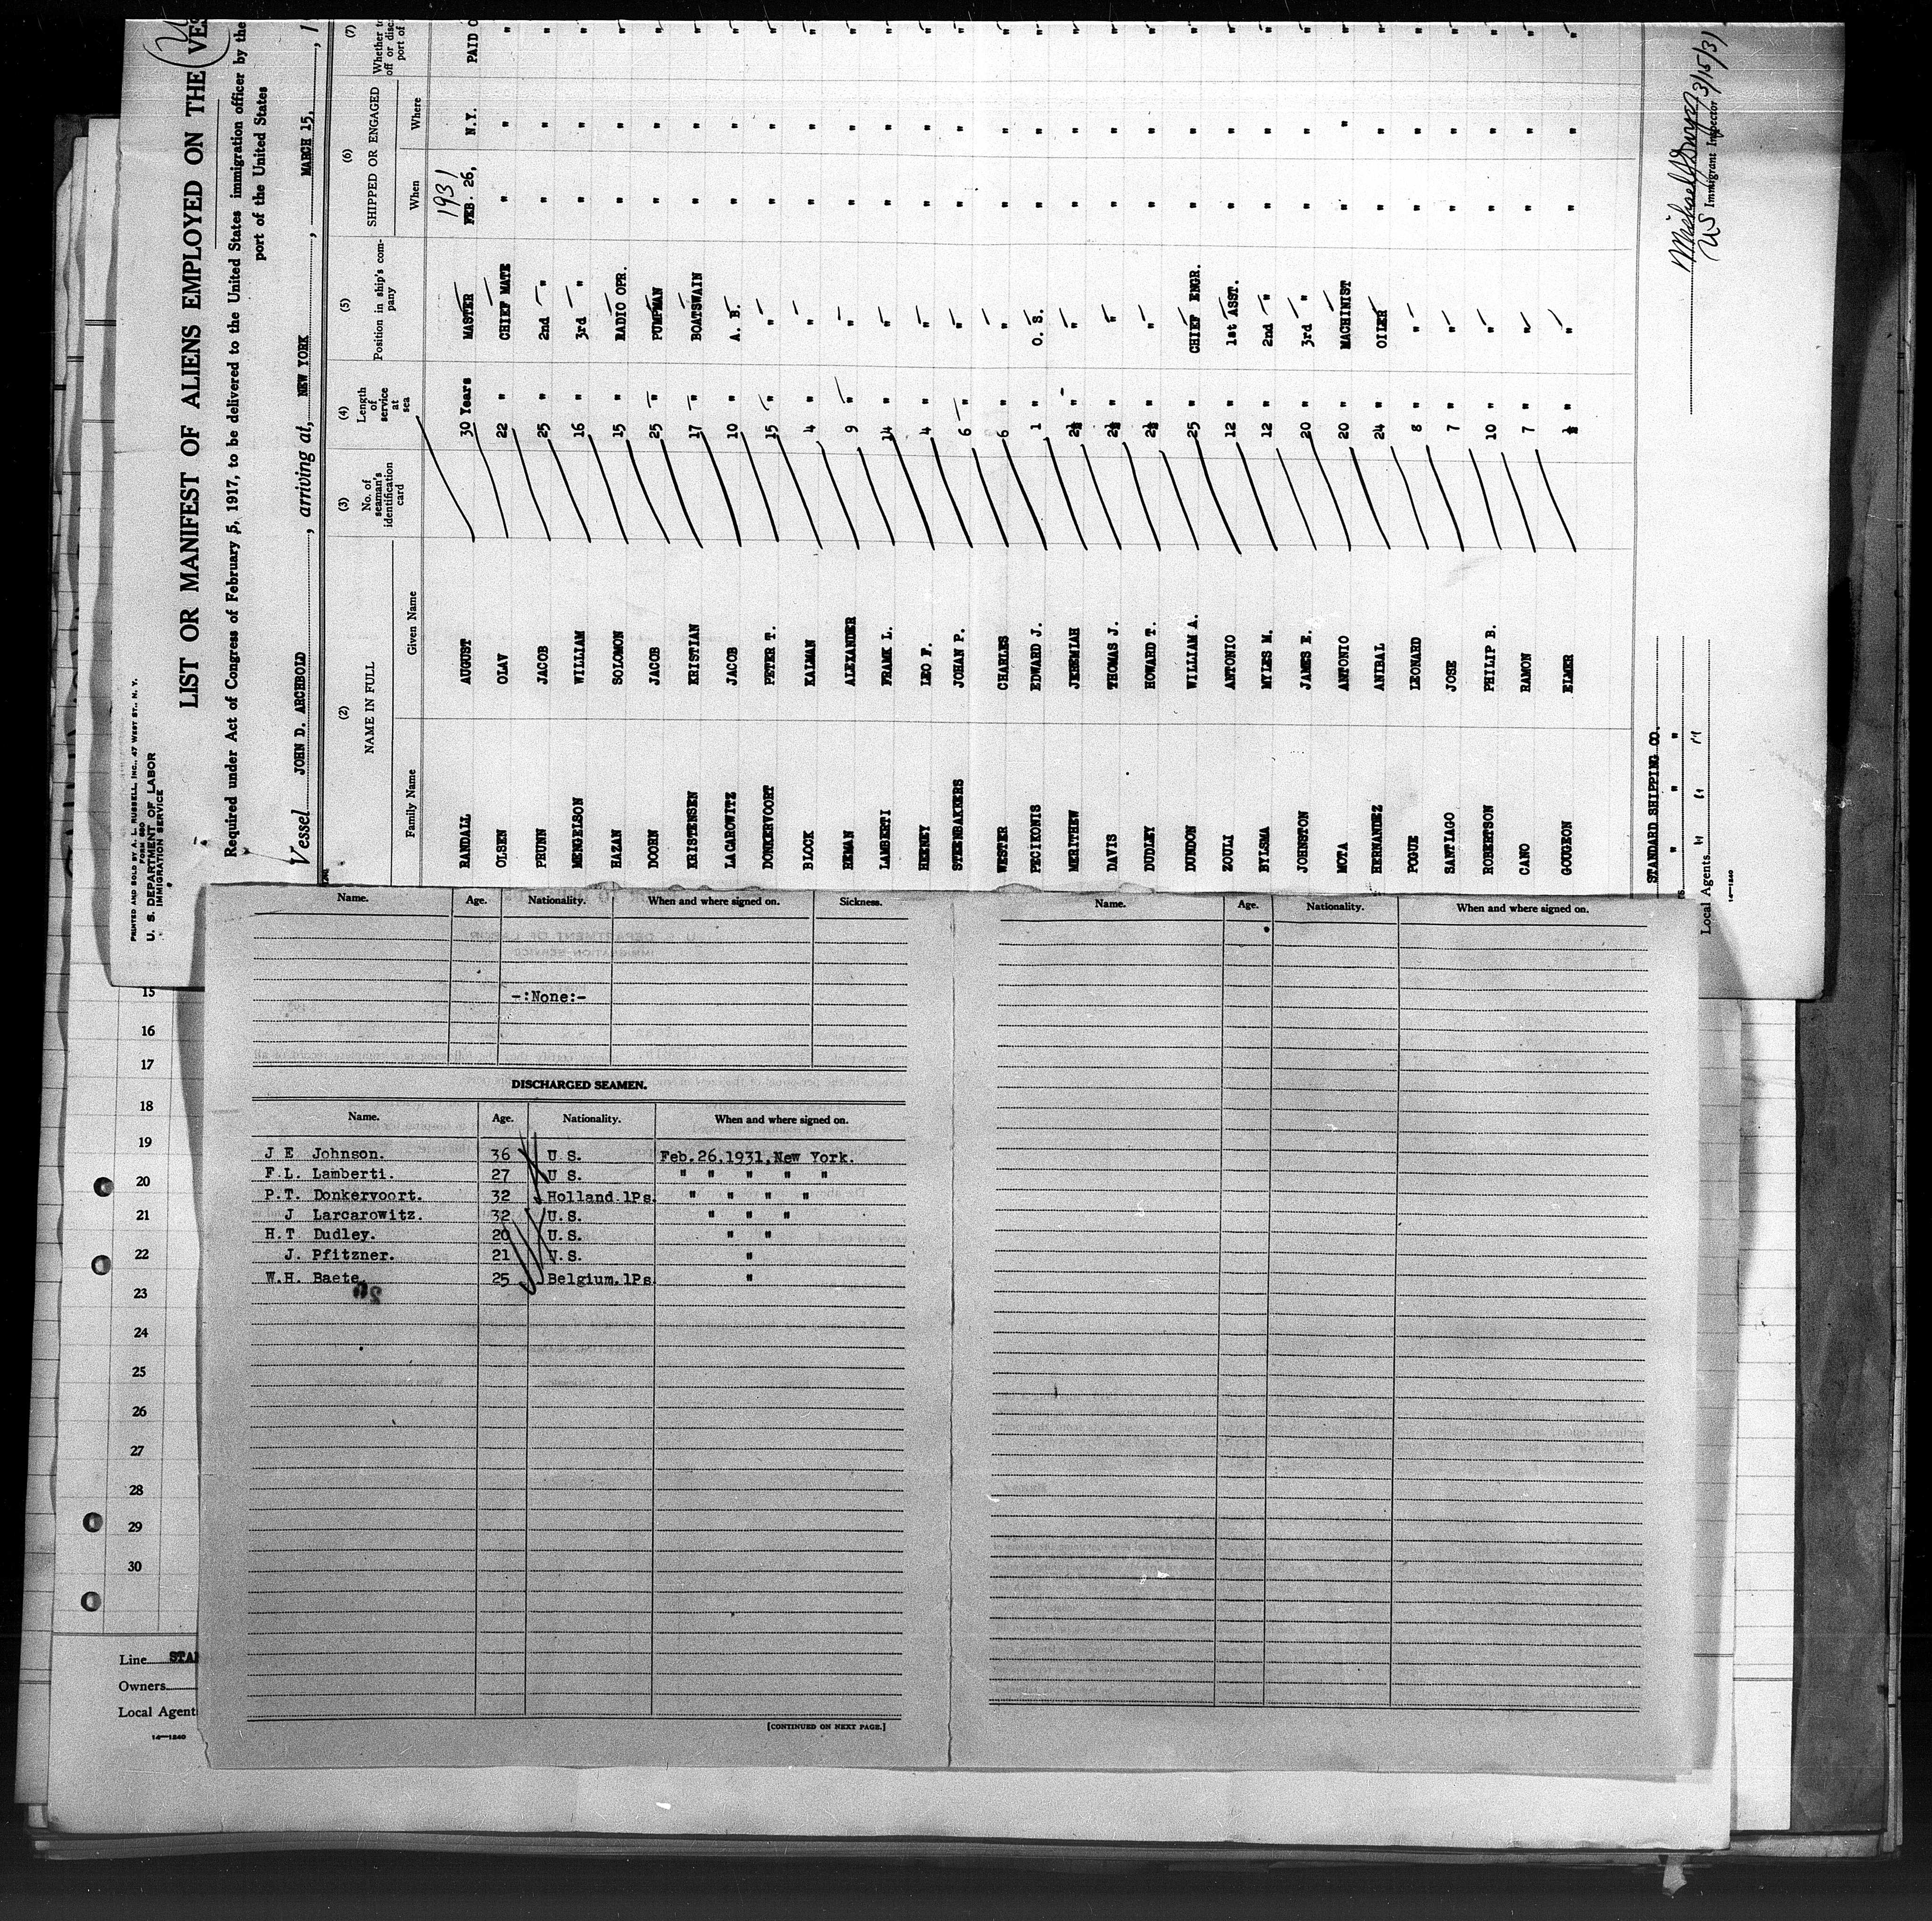 PRINTED AND SOLD BY A. L. RUSSELL, INC., 47 WEST ST., N. Y.
FORM 680
U. S. DEPARTMENT OF LABOR
IMMIGRATION SERVICE
LIST OR MANIFEST OF ALIENS EMPLOYED ON THE VES
Required under Act of Congress of February 5, 1917, to be delivered to the United States immigration officer by the
port of the United States
Vessel JOHN D. ARCHBOLD, arriving at, NEW YORK, MARCH 15, 1
(2) (3) (4) (5) (6) (7)
NAME IN FULL No. of seaman's identification card Length of service at sea Position in ship's company SHIPPED OR ENGAGED Whether t off or disc port of
Family Name Given Name When Where
1931
RANDALL AUGUST 30 Years MASTER FEB. 26, N.Y. PAID O
OLSEN OLAV 22 " CHIEF MATE " " "
PRUHN JACOB 25 " 2nd " " " "
MENGELSON WILLIAM 16 " 3rd " " " "
HAZAN SOLOMON 15 " RADIO OPR. " " "
DOORN JACOB 25 " PUMPMAN " " "
KRISTENSEN KRISTIAN 17 " BOATSWAIN " " "
LACAROWITZ JACOB 10 " A. B. " " "
DONKERVOORT PETER T. 15 " " " " "
BLOCK KALMAN 4 " " " " "
HEMAN ALEXANDER 9 " " " " "
LAMBERTI FRANK L. 14 " " " " "
HERNEY LEO F. 4 " " " " "
STEENBAKKERS JOHAN P. 6 " " " " "
WESTER CHARLES 6 " " " " "
PECIKONIS EDWARD J. 1 " O. S. " " "
MERITHEW JEREMIAH 2½ " " " " "
DAVIS THOMAS J. 2½ " " " " "
DUDLEY HOWARD T. 2½ " " " " "
DUNDON WILLIAM A. 25 " CHIEF ENGR. " " "
ZOULI ANTONIO 12 " 1st ASST. " " "
BYLSMA MYLES M. 12 " 2nd " " " "
JOHNSTON JAMES E. 20 " 3rd " " " "
MOTA ANTONIO 20 " MACHINIST " " "
HERNANDEZ ANIBAL 24 " OILER " " "
POGUE LEONARD 8 " " " " "
SANTIAGO JOSE 7 " " " " "
ROBERTSON PHILIP B. 10 " " " " "
CANO RAMON 7 " " " " "
GOUGEON ELMER ½ " " " " "
STANDARD SHIPPING CO.
" " " "
Local Agents
14—1240
3/15/31
US Immigrant Inspector
Name. Age. Nationality. When and where signed on. Sickness.
-:None:-
DISCHARGED SEAMEN.
Name. Age. Nationality. When and where signed on.
J E Johnson. 36 U S. Feb.26.1931,New York.
F.L. Lamberti. 27 U S. " " " " "
P.T. Donkervoort. 32 Holland.1Ps. " " " "
J Larcarowitz. 32 U.S. " " "
H.T Dudley. 20 U.S. " "
J. Pfitzner. 21 U.S. "
W.H. Baete. 25 Belgium.1Ps. "
[CONTINUED ON NEXT PAGE.]
Name. Age. Nationality. When and where signed on.
15
16
17
18
19
20
21
22
23
24
25
26
27
28
29
30
Line STA
Owners
Local Agent
14—1240